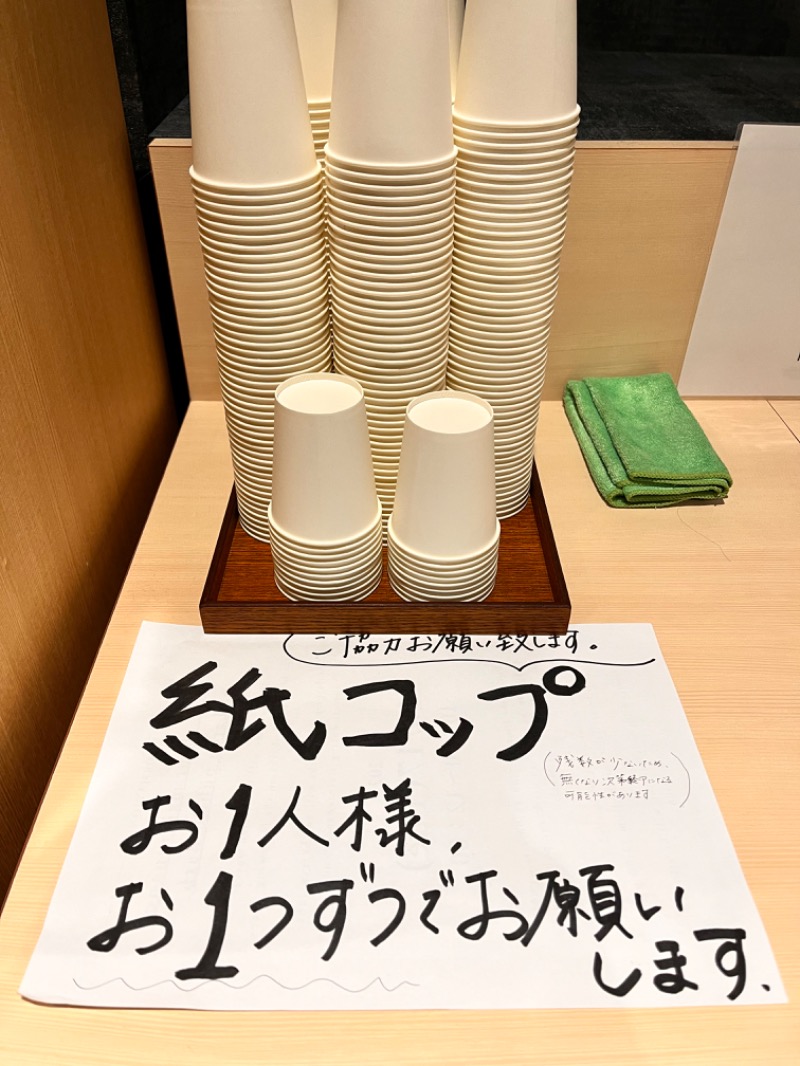 ご協力お願い致します。
紙コップ
(残数が少ないため、
無くなり次第終了になる
可能性があります)
お1人様、
お1つずつでお願い
します.